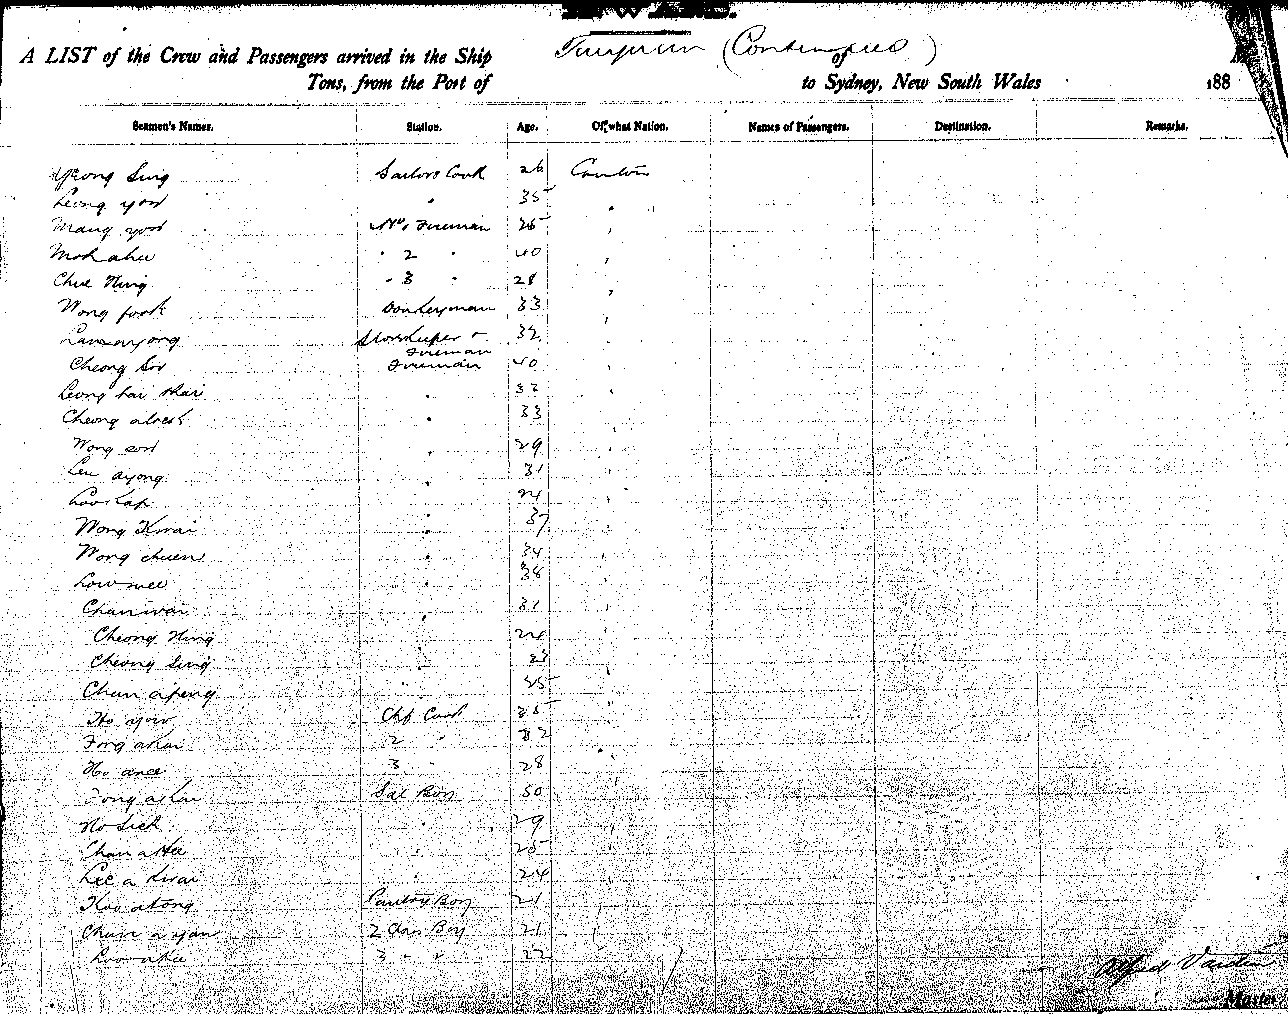 A LIST of the Crew and Passengers arrived in the Ship (Continued)
of
Tons, from the Port of to Sydney, New South Wales 188
Seamen's Names. Station. Age. Of what Nation. Names of Passengers. Destination. Remarks.
Yeong Sing Sailors Cook 26 Canton
Leong yow " 35 "
Mang yow No 1 Fireman 36 "
Moh ahee " 2 " 40 "
Chee Hing " 3 " 28 "
Wong fook Donkeyman 33 "
Lam ayong Storekeeper + 32 "
Fireman
Cheong Fireman 40 "
Leong hai " 32 "
Cheong " 33 "
Wong " 29 "
ayong " 31 "
" 24 "
Wong Kwai " 37 "
Wong chuen " 34 "
Low mee " 38 "
Chan wai " 31 "
Cheong Hing " 24 "
Cheong Sing " "
Chan apeng " 45 "
Ho yow Chf Cook 35 "
Fong akai 2 " 32 "
Ho ance 3 " 28
Fong Sal Boy 50
Ho Sick " 29 "
Chan a Hee " 25 "
Lee a Kwai " 24 "
atong Pantry Boy 21 "
Chan a yan 2 Clas Boy 21 "
3 " " 22 "
Alfred
Master